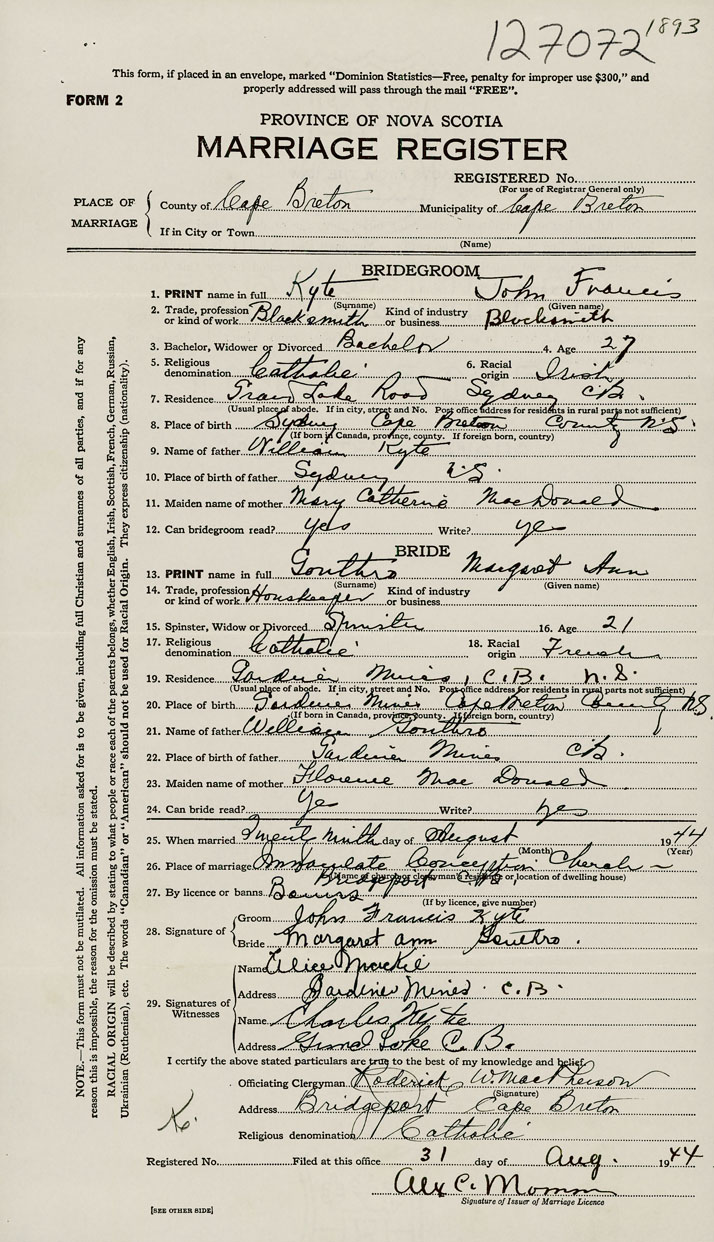 127072 1893
This form, if placed in an envelope, marked "Dominion Statistics—Free, penalty for improper use $300," and
properly addressed will pass through the mail "FREE".
FORM 2
PROVINCE OF NOVA SCOTIA
MARRIAGE REGISTER
REGISTERED No.
(For use of Registrar General only)
PLACE OF MARRIAGE
County of Cape Breton Municipality of Cape Breton
If in City or Town
(Name)
BRIDEGROOM
1. PRINT name in full Kyte John Francis
(Surname) (Given name)
2. Trade, profession or kind of work Blacksmith Kind of industry or business Blacksmith
3. Bachelor, Widower or Divorced Bachelor 4. Age 27
5. Religious denomination Catholic 6. Racial origin Irish
7. Residence Grand Lake Road Sydney C.B.
(Usual place of abode. If in city, street and No. Post office address for residents in rural parts not sufficient)
8. Place of birth Sydney Cape Breton County N.S.
(If born in Canada, province, county. If foreign born, country)
9. Name of father William Kyte
10. Place of birth of father Sydney N.S.
11. Maiden name of mother Mary Catherine MacDonald
12. Can bridegroom read? yes Write? yes
BRIDE
13. PRINT name in full Gouthro Margaret Ann
(Surname) (Given name)
14. Trade, profession or kind of work Houskeeper Kind of industry or business
15. Spinster, Widow or Divorced Spinster 16. Age 21
17. Religious denomination Catholic 18. Racial origin French
19. Residence Gardiner Mines, C.B. N.S.
(Usual place of abode. If in city, street and No. Post office address for residents in rural parts not sufficient)
20. Place of birth Gardiner Mines Cape Breton County N.S.
(If born in Canada, province, county. If foreign born, country)
21. Name of father William Gouthro
22. Place of birth of father Gardiner Mines C.B.
23. Maiden name of mother Florence MacDonald
24. Can bride read? Yes Write? yes
25. When married Twenty Ninth day of August 1944
(Month) (Year)
26. Place of marriage Immaculate Conception Church
Bridgeport C.B.
(Name of church or clergyman's residence or location of dwelling house)
27. By licence or banns Banns
(If by licence, give number)
28. Signature of
Groom John Francis Kyte
Bride Margaret Ann Gouthro.
29. Signatures of Witnesses
Name Alice Mackie
Address Gardiner Mines. C.B.
Name Charles Kyte
Address Grand Lake C.B.
I certify the above stated particulars are true to the best of my knowledge and belief.
Officiating Clergyman Roderick W. MacPherson
(Signature)
Address Bridgeport Cape Breton
Religious denomination Catholic
Registered No. Filed at this office 31 day of Aug. 1944
Alex C.
Signature of Issuer of Marriage Licence
[SEE OTHER SIDE]
NOTE.—This form must not be mutilated. All information asked for is to be given, including full Christian and surnames of all parties, and if for any
reason this is impossible, the reason for the omission must be stated.
RACIAL ORIGIN will be described by stating to what people or race each of the parents belongs, whether English, Irish, Scottish, French, German, Russian,
Ukrainian (Ruthenian), etc. The words "Canadian" or "American" should not be used for Racial Origin. They express citizenship (nationality).